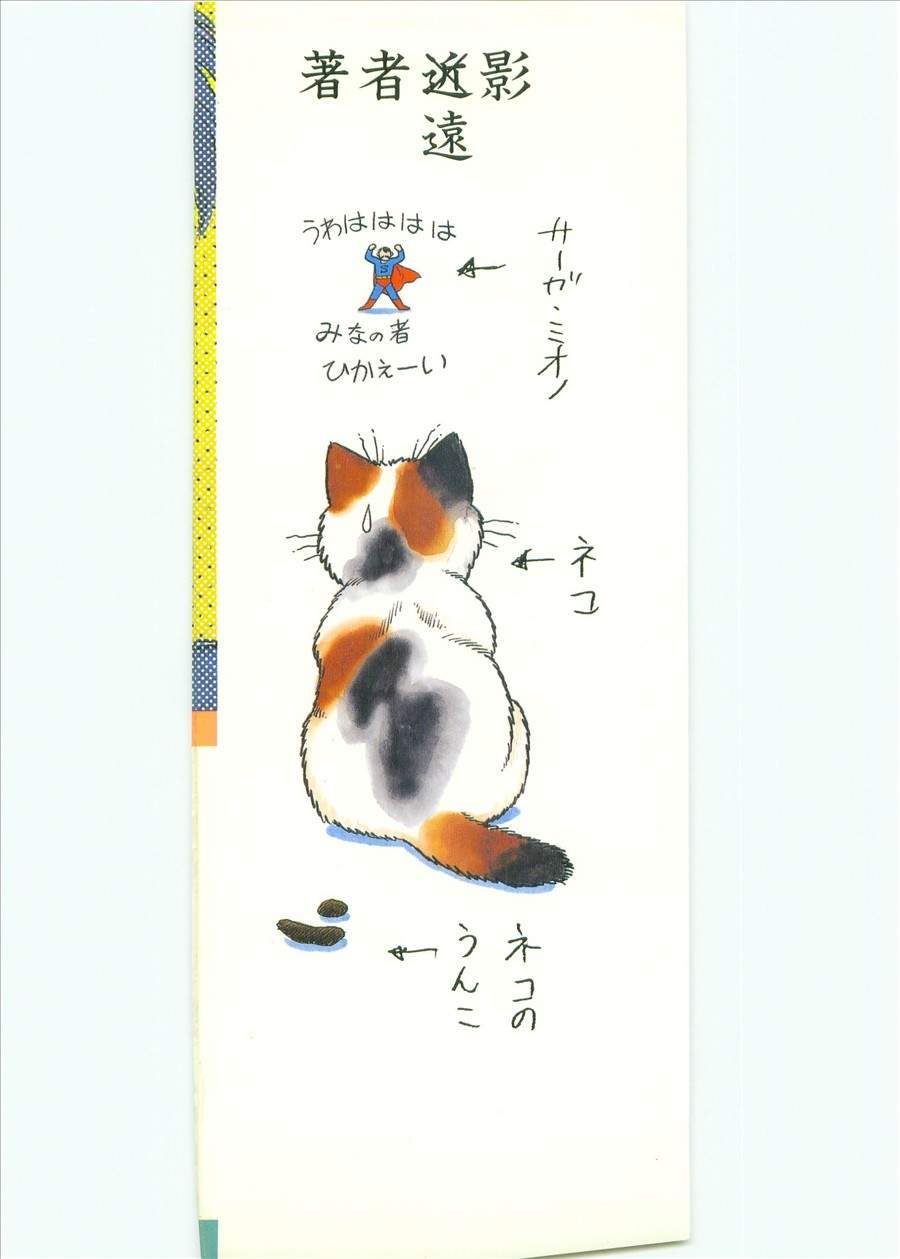 著者近影
遠
うわはははは
サーガ・ミオノ
みなの者
ひかえーい
S
ネコ
ネコの
うんこ